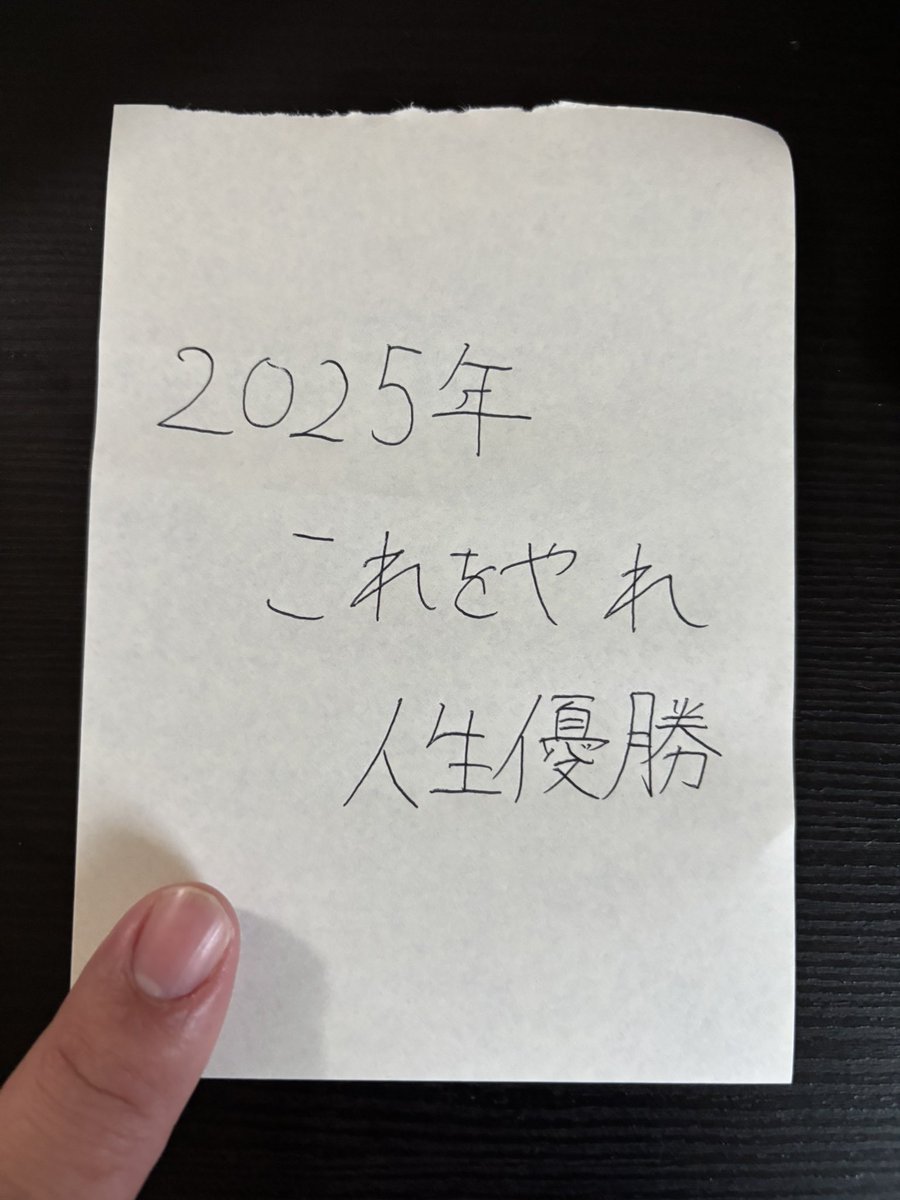 2025年
これをやれ
人生優勝